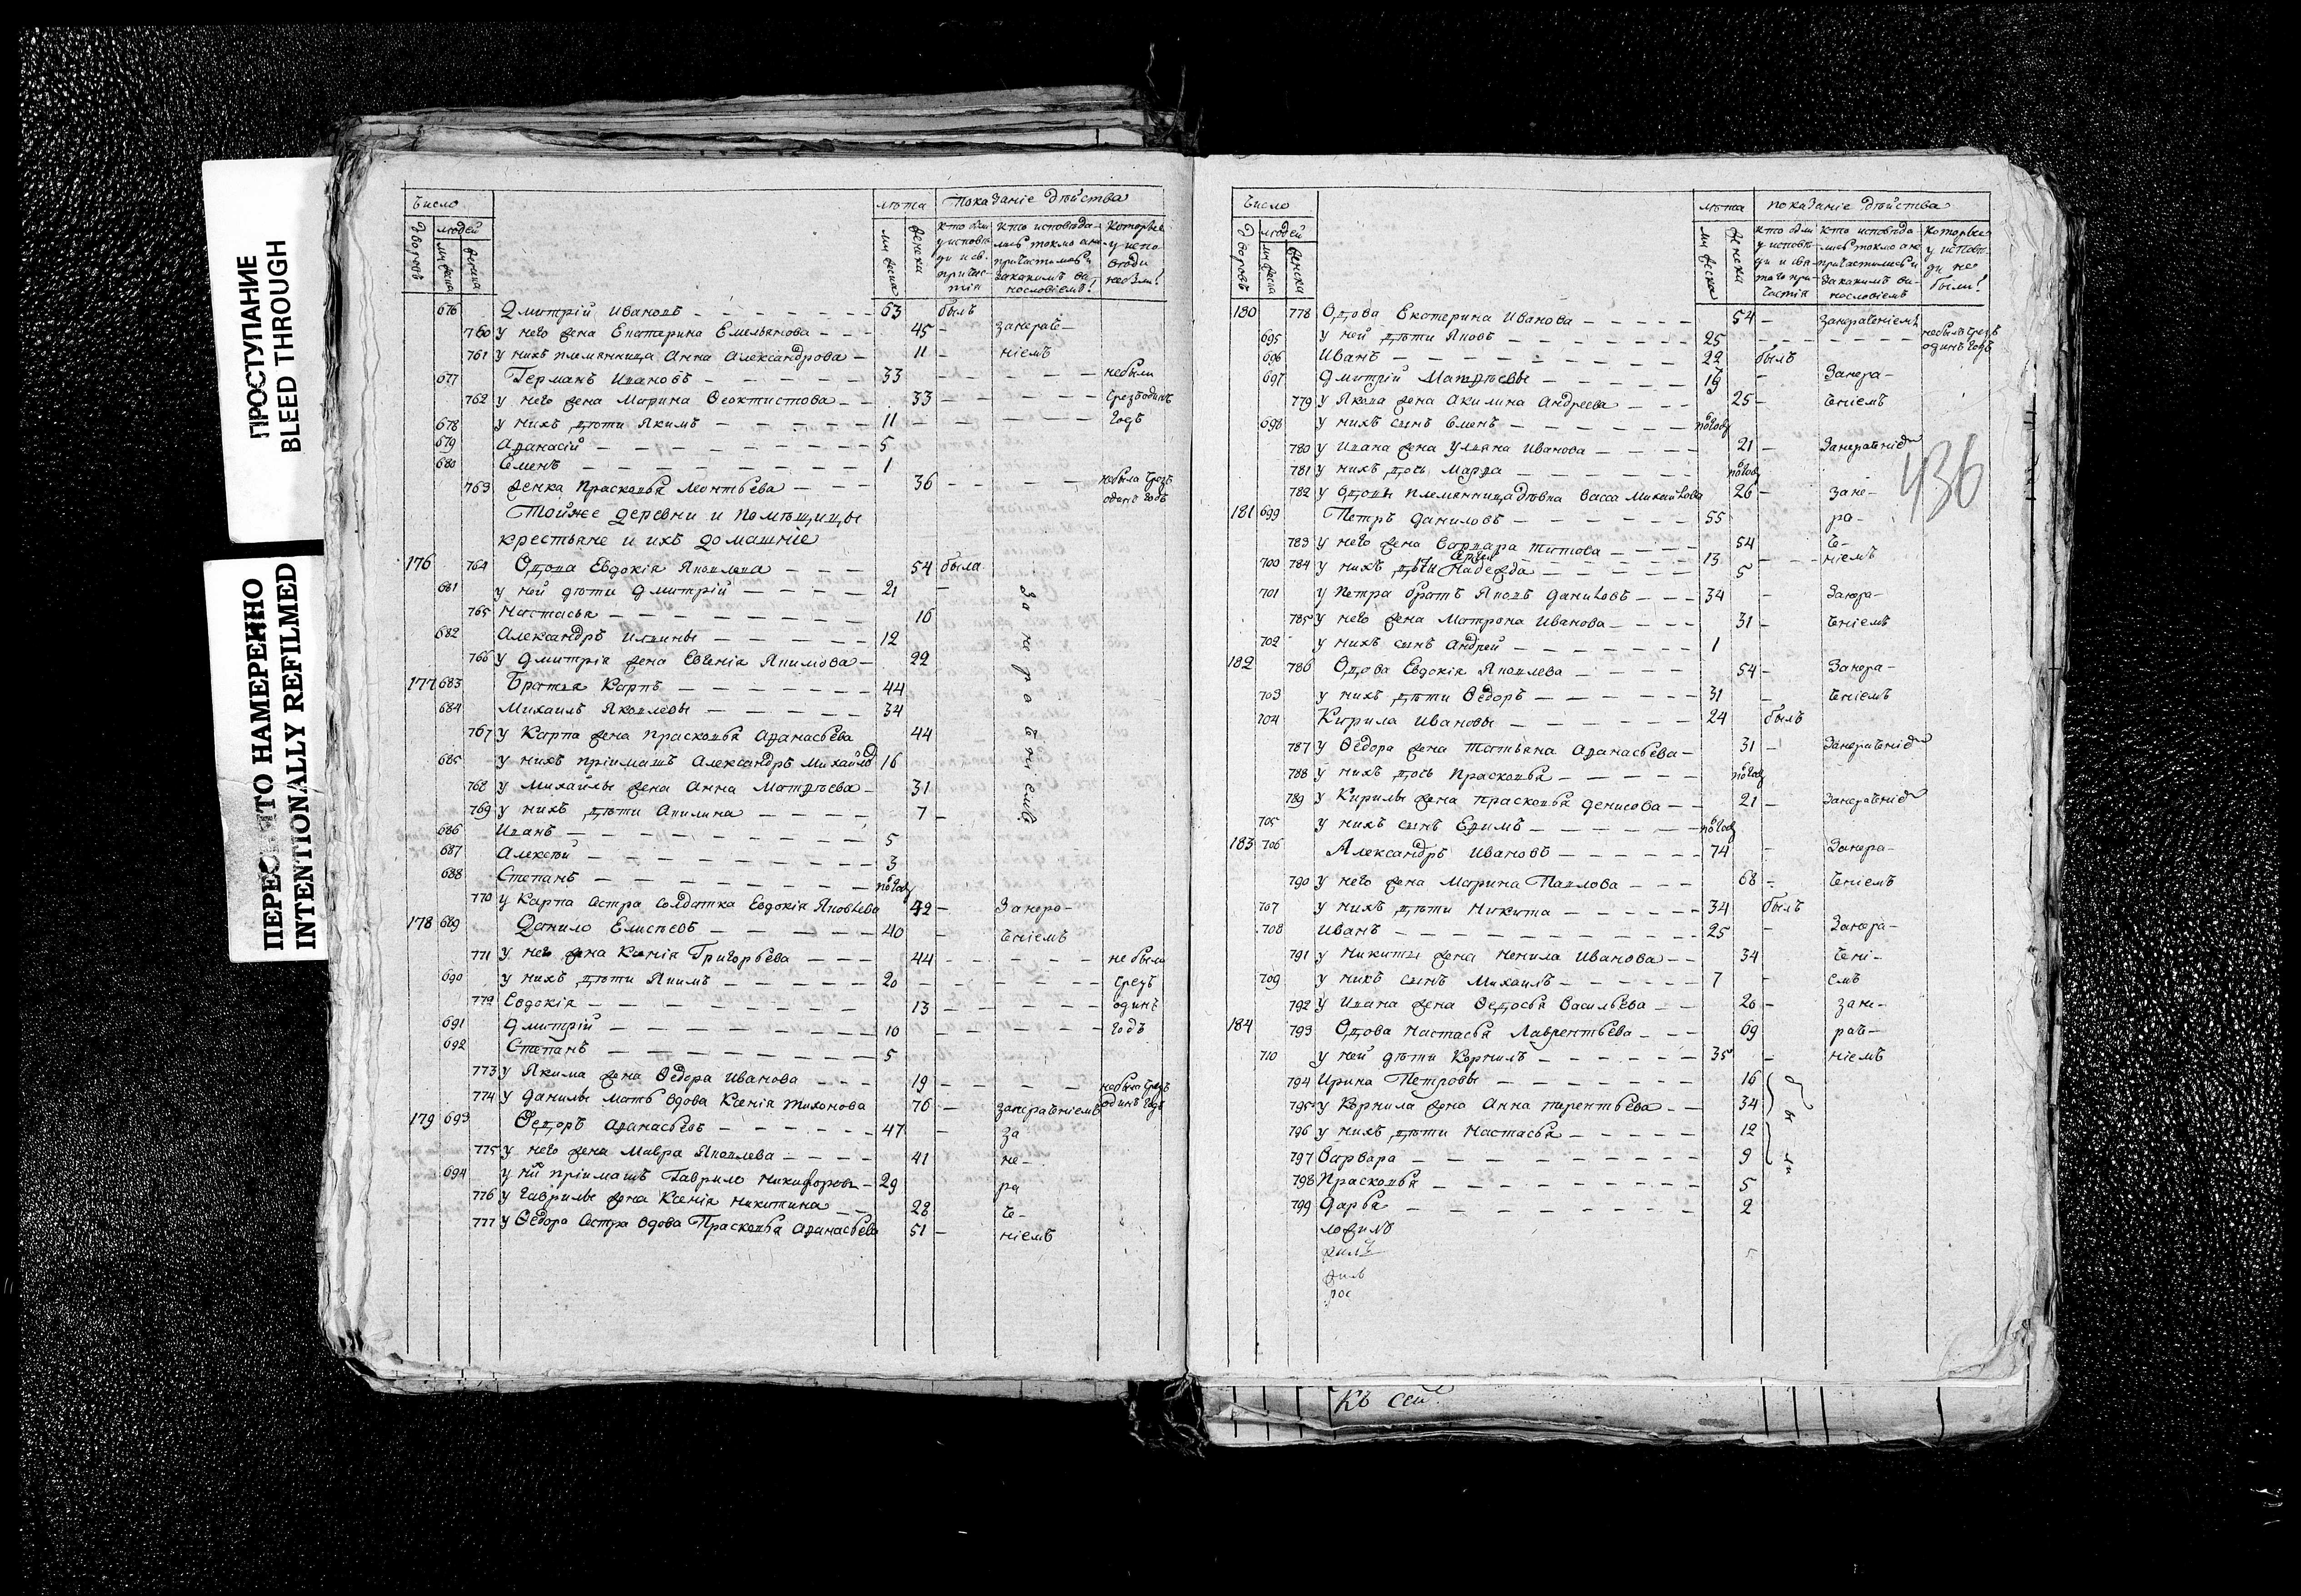 ПРОСТУПАНИЕ
BLEED THROUGH
ТО НАМЕРЕННО
INTENTIONALLY REFILMED
Число лѣта показаніе дѣйства
людей
676 Дмитрій Ивановъ 63 былъ
760 у него жена Екатерина Емельянова 45 занерачѣ-
761 у нихъ племянница Анна Александрова 11 ніемъ
677 Германъ Ивановъ 33 небыли
762 у него жена Марина Ѳеоктистова 33 чрезъ одинъ
678 у нихъ дѣти Якимъ 11 годъ
679 Афанасій 5
680 Семенъ 1
763 женка Прасковья Леонтьева 36 небыла чрезъ
одинъ годъ
Тойже деревни и помѣщицы
крестьяне и ихъ домашніе
176 764 Вдова Евдокія Яковлева 54 была
681 у ней дѣти Дмитрій 21
765 Настасья 16
682 Александръ Ильины 12
766 у Дмитрія жена Евгенія Якимова 22
177 683 Братья Карпъ 44
684 Михаилъ Яковлевы 34
767 у Карпа жена Прасковья Афанасьева 44
685 у нихъ пріимашъ Александръ Михайлов 16
768 у Михайлы жена Анна Матфѣева 31
769 у нихъ дѣти Акилина 7
686 Иванъ 5
687 Алексѣй 3
688 Степанъ полгоду
770 у Карпа сестра солдатка Евдокія Яковлева 42 Занера-
178 689 Данило Елисѣевъ 40 чѣніемъ
771 у него жена Ксенія Григорьева 44 не были
690 у нихъ дѣти Якимъ 20 чрезъ
772 Евдокія 13 одинъ
691 Дмитрій 10 годъ
692 Степанъ 5
773 у Якима жена Ѳедора Иванова 19 небыла чрезъ
774 у Данилы мать вдова Ксенія Тихонова 76 занераченіемъ одинъ годъ
179 693 Ѳедоръ Афанасьевъ 47 за
775 у него жена Мавра Яковлева 41 не-
694 у ней пріимашъ Гаврило Никифоровъ 29 ра
776 у Гаврилы жена Ксенія Никитина 28 че-
777 у Ѳедора сестра вдова Прасковья Афанасьева 51 ніемъ
Число лѣта показаніе дѣйства
людей
180 778 Вдова Екатерина Иванова 54 занераченіемъ
695 у ней дѣти Яковъ 25 небылъ чрезъ одинъ годъ
696 Иванъ 22 былъ
697 Дмитрій Матфѣевы 16 Занера-
779 у Якова жена Акилина Андреева 25 ченіемъ
698 у нихъ сынъ Семенъ полгоду
780 у Ивана жена Ульяна Иванова 21 Занераченіе
781 у нихъ дочь Марфа полгоду
436
782 у вдовы племянница дѣвка Васса Михайлова 26 зане-
181 699 Петръ Даниловъ 55 ра-
783 у него жена Варвара Титова 54 че-
700 784 у нихъ дѣти Надежда 13 5 ніемъ
701 у Петра братъ Яковъ Даниловъ 34 Занера-
785 у него жена Матрона Иванова 31 ченіемъ
702 у нихъ сынъ Андрей 1
182 786 Вдова Евдокія Яковлева 54 Занера-
703 у нихъ дѣти Ѳедоръ 31 ченіемъ
704 Кирила Ивановы 24 былъ
787 у Ѳедора жена Татьяна Афанасьева 31 Занераченіе
788 у нихъ дочь Прасковья полгоду
789 у Кирилы жена Прасковья Денисова 21 Занераченіе
705 у нихъ сынъ Ефимъ полгоду
183 706 Александръ Ивановъ 74 Занера-
790 у него жена Марина Павлова 68 ченіемъ
707 у нихъ дѣти Никита 34 былъ
708 Иванъ 25 Занера-
791 у Никиты жена Ненила Иванова 34 чені-
709 у нихъ сынъ Михаилъ 7 емъ
792 у Ивана жена Ѳедосья Васильева 20 зане-
184 793 Вдова Настасья Лаврентьева 69 раче-
710 у ней дѣти Корнилъ 35 ніемъ
794 Ирина Петровы 16
795 у Корнила жена Анна Терентьева 34
796 у нихъ дѣти Настасья 12
797 Варвара 9
798 Прасковья 5
799 Дарья 2
Къ сей